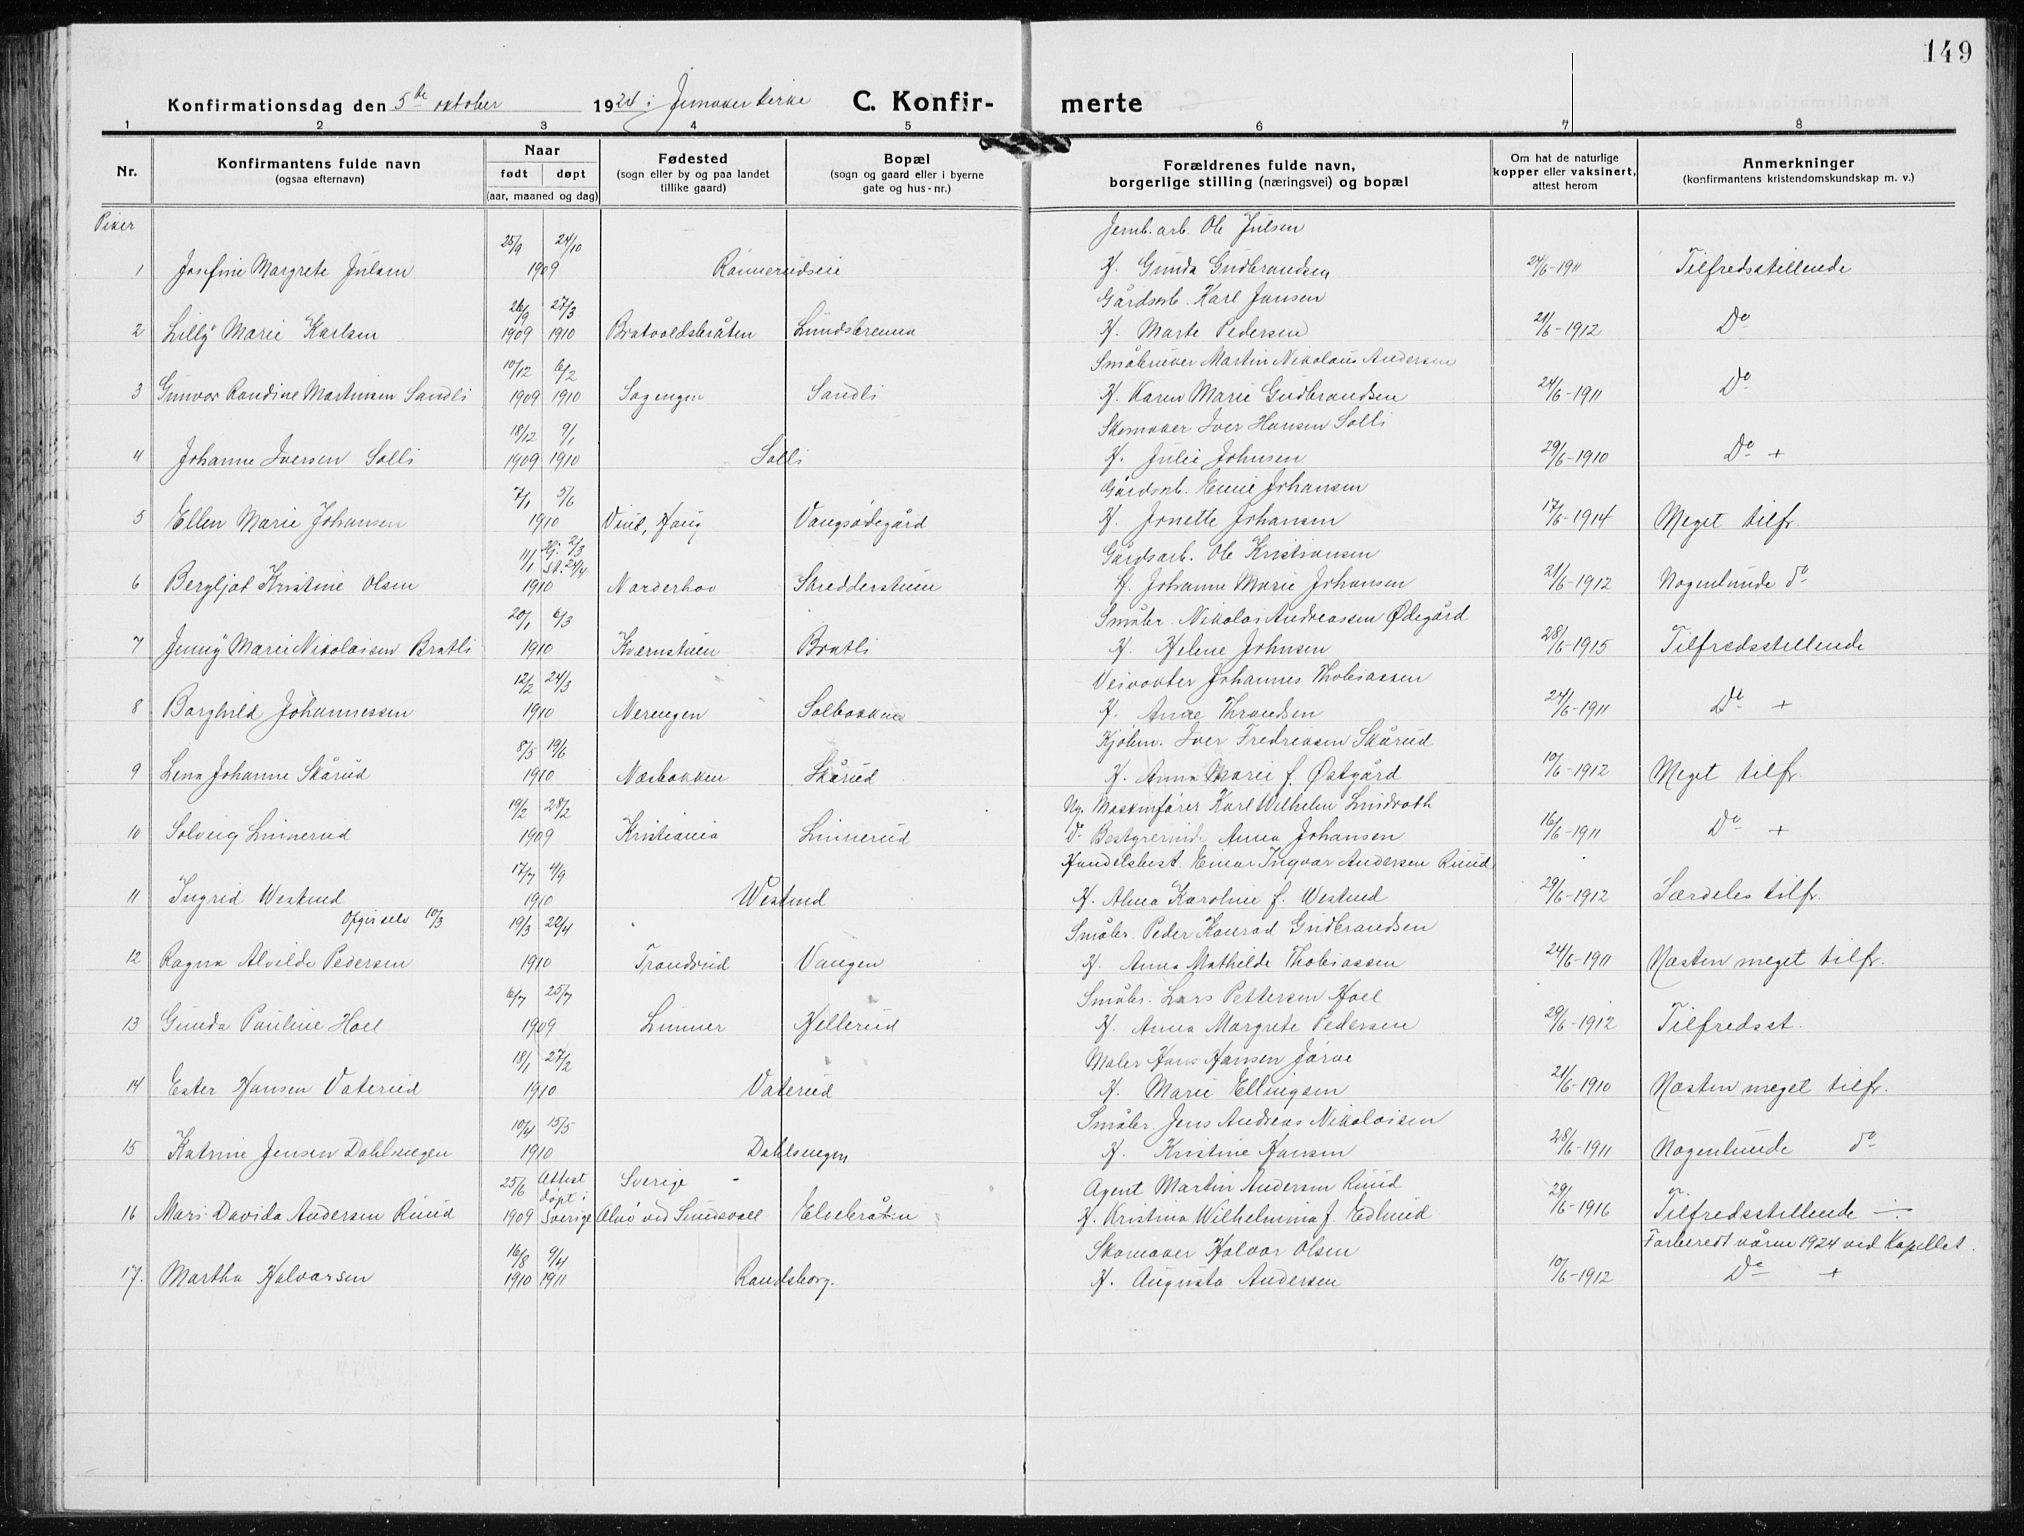 149
Konfirmationsdag den 5te oktober 1924 i Jevnaker kirke C. Konfir- merte
1 2 3 4 5 6 7 8
Nr. Konfirmantens fulde navn (ogsaa efternavn) Naar født døpt (aar, maaned og dag) Fødested (sogn eller by og paa landet tillike gaard) Bopæl (sogn og gaard eller i byerne gate og hus-nr.) Forældrenes fulde navn, borgerlige stilling (næringsvei) og bopæl Om hat de naturlige kopper eller vaksinert, attest herom Anmerkninger (konfirmantens kristendomskundskap m. v.)
Piker
25/9 24/10 Jernb. arb. Ole Julsen
1 Josefine Margrete Julsen 1909 Rønnerudseie H. Gunda Gudbrandsen 24/6-1911 Tilfredsstillende
26/9 27/3 Gårdsarb. Karl Jansen
2 Lilly Marie Karlsen 1909 1910 Bratvoldsbråten Lundsbrenna H. Marte Pedersen 21/6-1912 Do
10/12 6/2 Småbruker Martin Nikolaus Andersen
3 Gunvor Randine Martinsen Sandli 1909 1910 Sagengen Sandli H. Karen Marie Gudbrandsen 24/6-1911 Do
18/12 9/1 Skomaker Iver Hansen Solli
4 Johanne Iversen Solli 1909 1910 Solli H. Julie Johnsen 29/6-1910 Do +
7/1 5/6 Gårdsarb. Emil Johansen
5 Ellen Marie Johansen 1910 Viul, Haug Vangsødegård H. Jonette Johansen 17/6-1914 Meget tilfr.
11/1 Hj. 2/3 St. 24/4 Gårdsarb. Ole Kristiansen
6 Bergljot Kristine Olsen 1910 Norderhov Skredderstuen H. Johanne Marie Johansen 21/6-1912 Nogenlunde do
20/1 6/3 Småbr. Nikolai Andreassen Ødegård
7 Jenny Marie Nikolaisen Bratli 1910 Kvernstuen Bratli H. Helene Johnsen 28/6-1915 Tilfredsstillende
12/2 24/3 Veivokter Johannes Thobiassen
8 Borghild Johannessen 1910 Nerengen Solbakken H. Anne Thrandsen 24/6-1911 Do +
8/5 19/6 Kjøbm. Iver Fredriksen Skårud
9 Lena Johanne Skårud 1910 Næsbakken Skårud H. Anna Marie f. Østgård 10/6-1912 Meget tilfr.
19/2 28/2 Ug. Maskinfører Karl Wilhelm Lindroth
10 Solveig Linnerud 1909 Kristiania Linnerud Do Bestyrerinde Anna Johansen 16/6-1911 Do +
17/7 4/9 Handelsbest. Einar Ingvar Andersen Ruud
11 Ingrid Westend 1910 Westend H. Alma Karoline f. Westend 29/6-1912 Særdeles tilfr.
19/3 22/4 Småbr. Peder Konrad Gudbrandsen
12 Ragna Alvilde Pedersen 1910 Trandsrud Vangen H. Anna Mathilde Thobiassen 24/6-1911 Næsten meget tilfr.
6/7 25/7 Småbr. Lars Pettersen Hoel
13 Gunda Pauline Hoel 1909 Lunner Hellerud H. Anna Margrete Pedersen 29/6-1912 Tilfredsst.
18/1 27/2 Maler Hans Hansen Jørve
14 Ester Hansen Vaterud 1910 Vaterud H. Marie Ellingsen 21/6-1910 Næsten meget tilfr.
10/4 15/5 Småbr. Jens Andreas Nikolaisen
15 Katrine Jensen Dahlsengen 1910 Dahlsengen H. Kristine Hansen 28/6-1911 Nogenlunde do
25/6 Attest døpt i Sverige Agent Martin Andersen Ruud
16 Mari Davida Andersen Ruud 1909 Sverige Alnö ved Sundsvall Elvebråten H. Kristina Wilhelmina f. Edlund 29/6-1916 Tilfredsstillende
16/8 9/4 Skomaker Halvor Olsen Forberedt våren 1924 ved Kapellet.
17. Martha Halvorsen 1910 1911 Randsborg. H. Augusta Andersen 10/6-1912 Do +